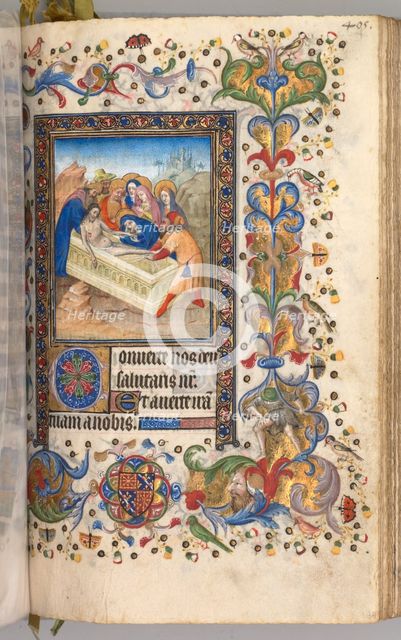 405.
Onuerte nos deus
salutaris nr̃.
Et auerte irã
tuam a nobis.
Heritage
Heritage
Heritage
Heritage
Heritage
Heritage
Heritage
Heritage